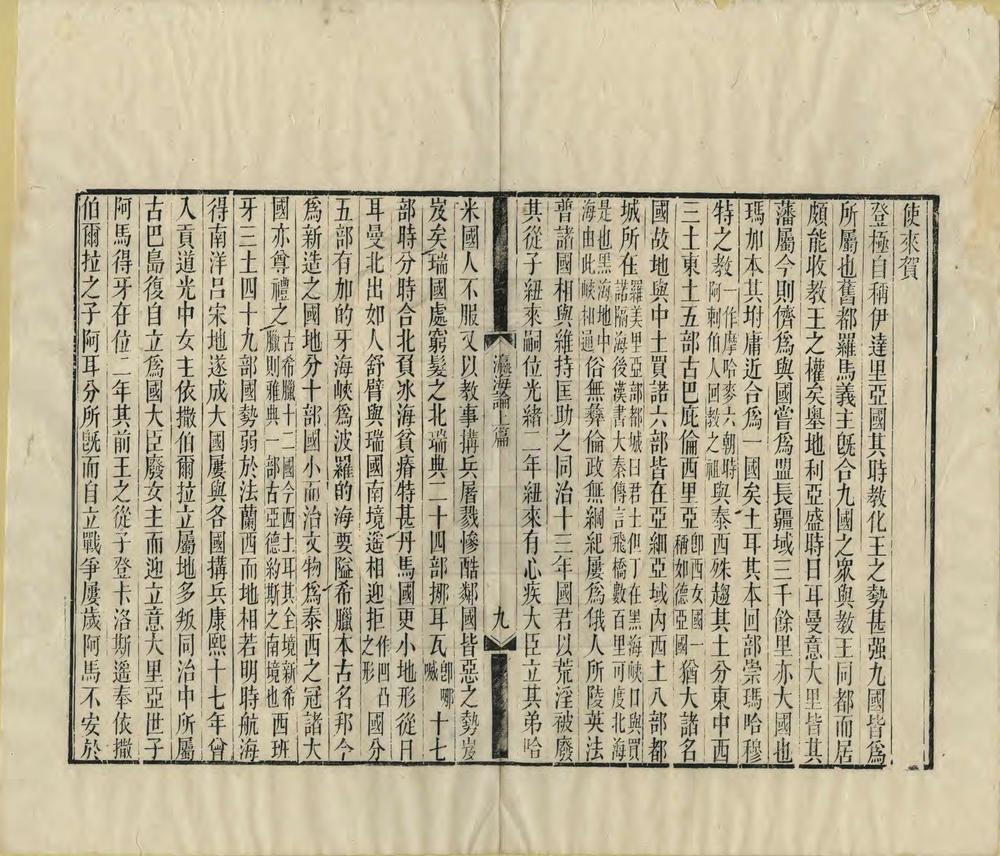 使來賀
登極自稱伊達里亞國其時教化王之勢甚强九國皆爲
所屬也舊都羅馬義主旣合九國之衆與教王同都而居
頗能收教王之權矣壆地利亞盛時日耳曼意大里皆其
藩屬今則儕爲與國嘗爲盟長疆域三千餘里亦大國也
瑪加本其坿庸近合爲一國矣土耳其本回部崇瑪哈穆
特之教一作摩哈麥六朝時阿剌伯人回教之祖與泰西殊趨其土分東中西
三土東土五部古巴庇倫西里亞卽西女國一稱如德亞國猶大諸名
國故地與中土買諾六部皆在亞細亞域內西土八部都
城所在羅美里亞部都城曰君士但丁在黑海峽口與買諾隔海後漢書大秦傳言飛橋數百里可度北海
是也黑海地中海由此峽相通俗無彝倫政無綱紀屢爲俄人所陵英法
普諸國相與維持匡助之同治十三年國君以荒淫被廢
其從子紐來嗣位光緒二年紐來有心疾大臣立其弟哈
瀛海論上篇 九
米國人不服又以教事搆兵屠戮慘酷鄰國皆惡之勢岌
岌矣瑞國處窮髮之北瑞典二十四部挪耳瓦卽哪噉十七
部時分時合北負冰海貧瘠特甚丹馬國更小地形從日
耳曼北出如人舒臂與瑞國南境遙相迎拒作凹凸之形國分
五部有加的牙海峽爲波羅的海要隘希臘本古名邦今
爲新造之國地分十部國小而治文物爲泰西之冠諸大
國亦尊禮之古希臘十二國今西土耳其全境新希臘則雅典一部古亞德約斯之南境也西班
牙三土四十九部國勢弱於法蘭西而地相若明時航海
得南洋呂宋地遂成大國屢與各國搆兵康熙十七年曾
入貢道光中女主依撒伯爾拉立屬地多叛同治中所屬
古巴島復自立爲國大臣廢女主而迎立意大里亞世子
阿馬得牙在位二年其前王之從子登卡洛斯遙奉依撒
伯爾拉之子阿耳分所旣而自立戰爭屢歲阿馬不安於